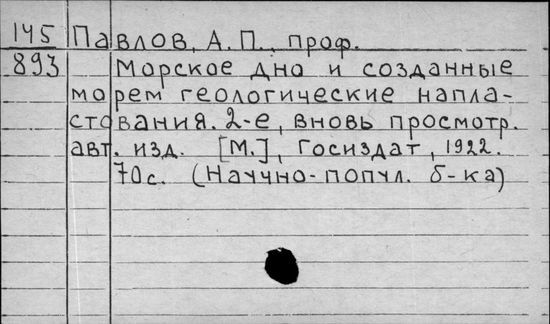 145 Павлов, А.П., проф.
893 Морское дно и созданные
морем геологические напла-
стования. 2-е, вновь просмотр.
авт. изд. [М.], Госиздат, 1922.
70с. (Научно-попул. б-ка)